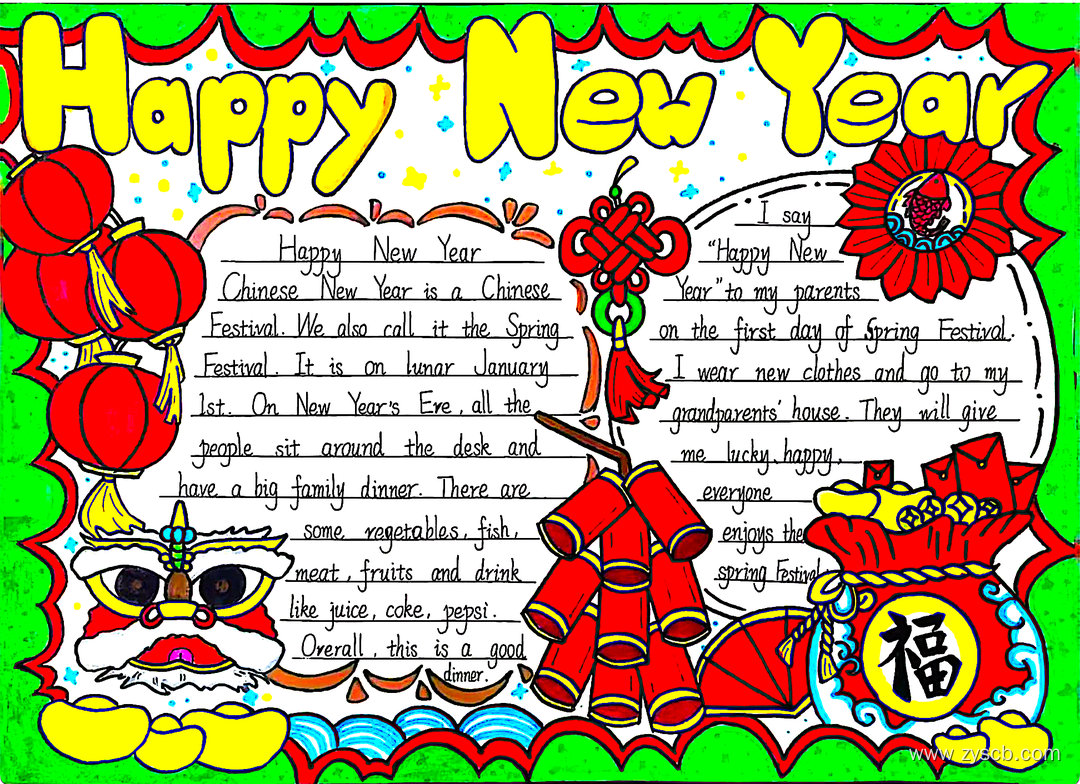 Happy New Year
Happy New Year
Chinese New Year is a Chinese
Festival. We also call it the Spring
Festival. It is on lunar January
1st. On New Year's Eve, all the
people sit around the desk and
have a big family dinner. There are
some vegetables, fish,
meat, fruits and drink
like juice, coke, pepsi.
Overall, this is a good
dinner.
I say
"Happy New
Year" to my parents
on the first day of Spring Festival.
I wear new clothes and go to my
grandparents' house. They will give
me lucky, happy,
everyone
enjoys the
spring Festival.
福
www.zyscb.com